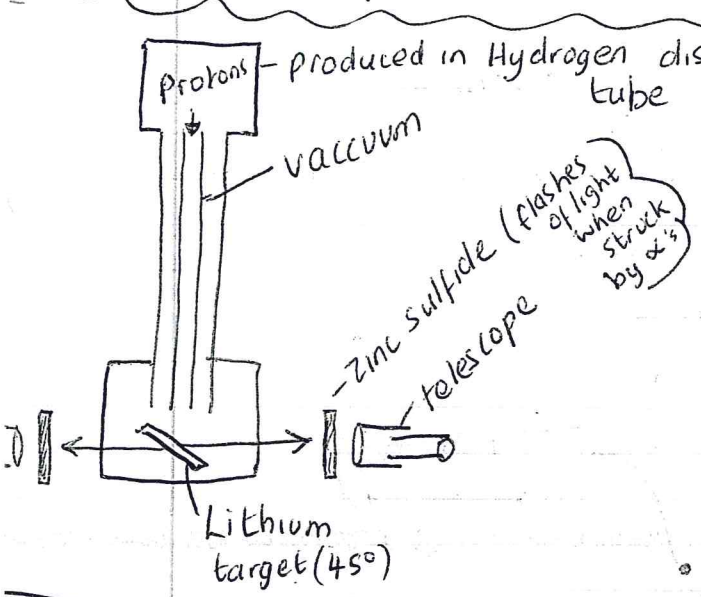 Protons
- produced in Hydrogen dis
tube
vaccuum
- Zinc sulfide (flashes
of light
when
struck
by α's)
telescope
Lithium
target (45°)